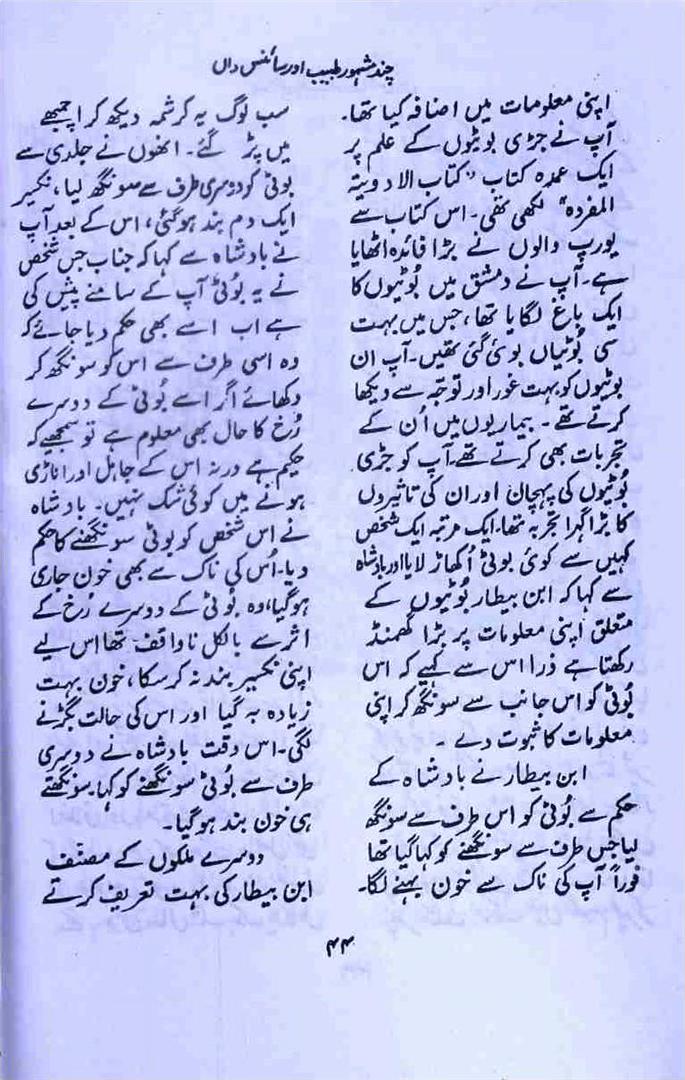 چند مشہور طبیب اور سائنس داں
اپنی معلومات میں اضافہ کیا تھا۔
آپ نے جڑی بوٹیوں کے علم پر
ایک عمدہ کتاب "کتاب الادویتہ
المفردہ" لکھی تھی۔ اس کتاب سے
یورپ والوں نے بڑا فائدہ اٹھایا
ہے۔ آپ نے دمشق میں بُوٹیوں کا
ایک باغ لگایا تھا، جس میں بہت
سی بُوٹیاں بوئی گئی تھیں۔ آپ ان
بوٹیوں کو بہت غور اور توجہ سے دیکھا
کرتے تھے۔ بیماریوں میں اُن کے
تجربات بھی کرتے تھے، آپ کو جڑی
بُوٹیوں کی پہچان اور ان کی تاثیروں
کا بڑا گہرا تجربہ تھا۔ ایک مرتبہ ایک شخص
کہیں سے کوئی بوٹی اُکھاڑ لایا اور بادشاہ
سے کہا کہ ابن بیطار بُوٹیوں کے
متعلق اپنی معلومات پر بڑا گھمنڈ
رکھتا ہے ذرا اس سے کہیے کہ اس
بُوٹی کو اس جانب سے سونگھ کر اپنی
معلومات کا ثبوت دے ۔
ابن بیطار نے بادشاہ کے
حکم سے بُوٹی کو اس طرف سے سونگھ
لیا جس طرف سے سونگھنے کو کہا گیا تھا
فوراً آپ کی ناک سے خون بہنے لگا۔
سب لوگ یہ کرشمہ دیکھ کر اچمبھے
میں پڑ گئے۔ انھوں نے جلدی سے
بوٹی کو دوسری طرف سے سونگھ لیا، نکسیر
ایک دم بند ہوگئی، اس کے بعد آپ
نے بادشاہ سے کہا کہ جناب جس شخص
نے یہ بُوٹی آپ کے سامنے پیش کی
ہے اب اسے بھی حکم دیا جائے کہ
وہ اسی طرف سے اس کو سونگھ کر
دکھائے اگر اسے بُوٹی کے دوسرے
رُخ کا حال بھی معلوم ہے تو سمجھیے کہ
حکیم ہے ورنہ اس کے جاہل اور اناڑی
ہونے میں کوئی شک نہیں۔ بادشاہ
نے اس شخص کو بوٹی سونگھنے کا حکم
دیا۔ اُس کی ناک سے بھی خون جاری
ہوگیا، وہ بُوٹی کے دوسرے رُخ کے
اثر سے بالکل ناواقف تھا اس لیے
اپنی نکسیر بند نہ کرسکا، خون بہت
زیادہ بہ گیا اور اس کی حالت بگڑنے
لگی۔ اس وقت بادشاہ نے دوسری
طرف سے بُوٹی سونگھنے کو کہا۔ سونگھتے
ہی خون بند ہوگیا۔
دوسرے ملکوں کے مصنّف
ابن بیطار کی بہت تعریف کرتے
۴۴